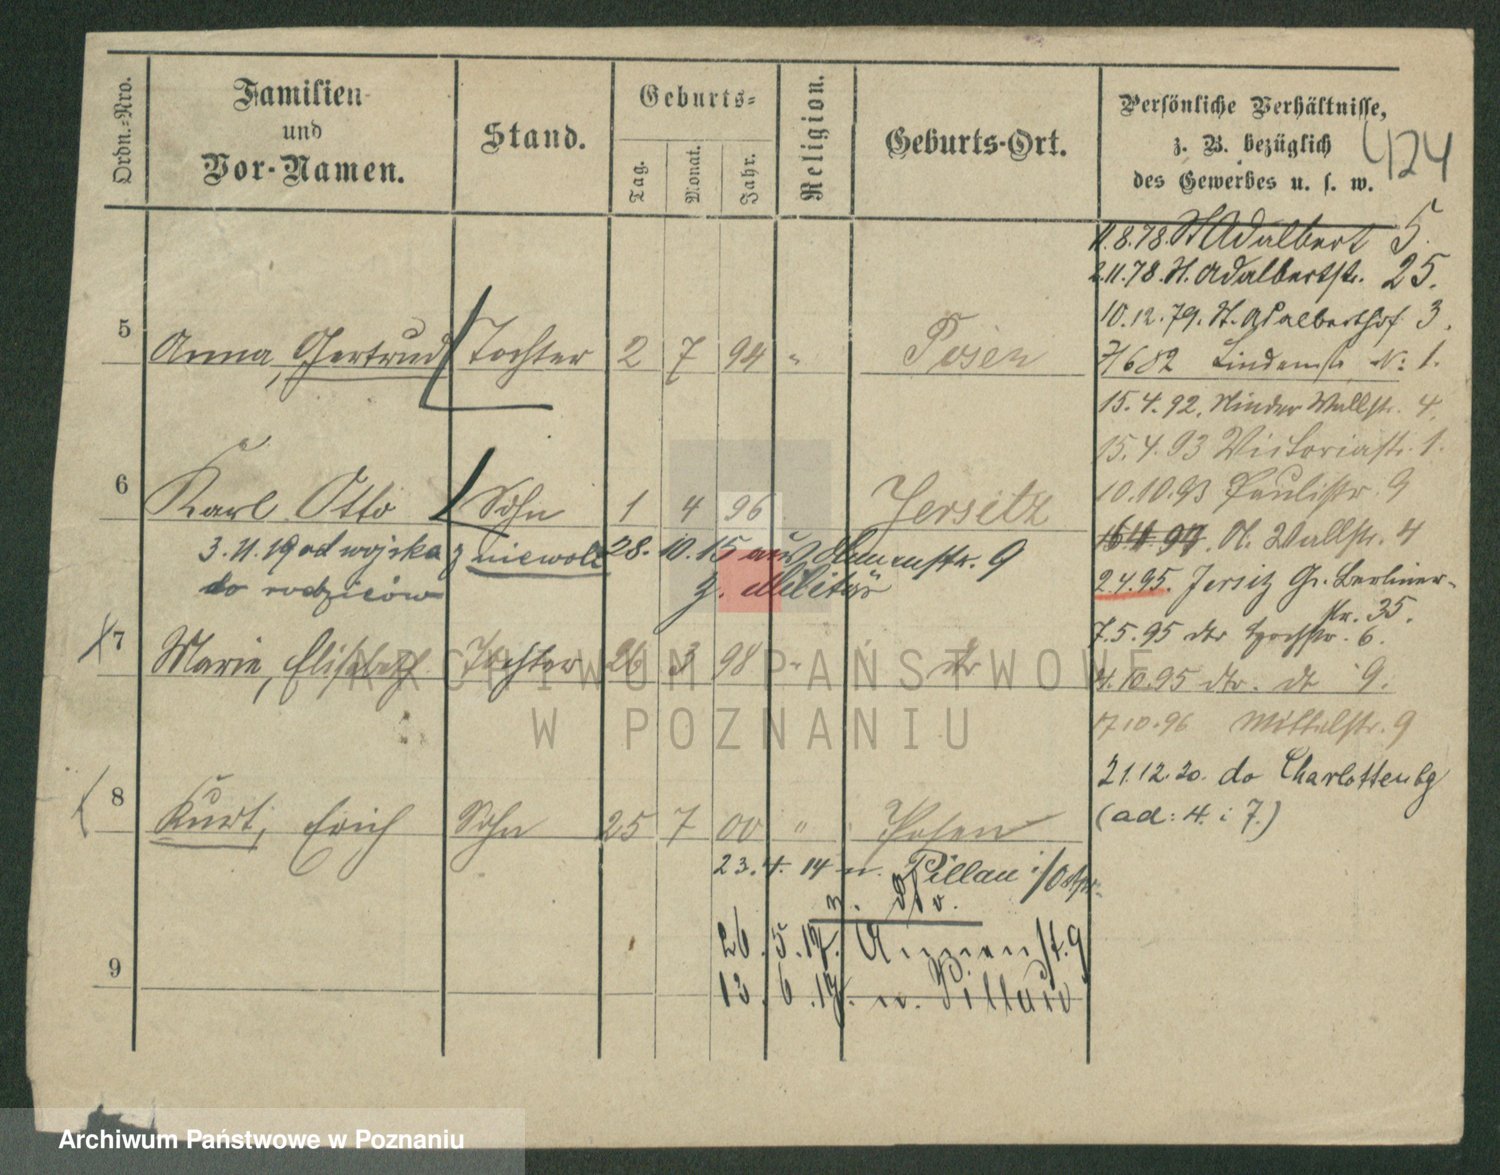 Ordn.-Nro.
Familien
und
Vor-Namen.
Stand.
Geburts-
Tag.
Monat.
Jahr.
Religion.
Geburts-Ort.
Persönliche Verhältnisse,
z. B. bezüglich
des Gewerbes u. s. w.
424
11.8.78. St Adalbert 5.
2.11.78. St. Adalbertstr. 25.
10.12.79. St. Adalberthof 3.
5 Anna, Gertrud Tochter 2 7 94 " Posen
Lindenstr N: 1.
15.4.92. Wallstr. 4.
15.4.93 Victoriastr. 1.
6 Karl Otto Sohn 1 4 96 Jersitz
10.10.93 Paulistr. 9
Wallstr. 4
3.11.19 od wojska z niewoli 28.10.15 aus 9
do rodziców z. Militär
2.4.95. Jersitz Gr. Berliner-
str. 35.
7.5.95 dto 6.
7 Marie, Elisabeth Tochter 26 3 98 " dto
4.10.95 dto. dto 9.
17.10.96 Mittelstr. 9
21.12.20. do Charlottenbg
(ad: 4. i 7.)
8 Kurt, Erich Sohn 25 7 00 " Posen
23.4.14 n. Pillau i/Ostpr.
v. dto.
26.5.17. 9
13.6.17. n. Pillau
9
ARCHIWUM PAŃSTWOWE
W POZNANIU
Archiwum Państwowe w Poznaniu